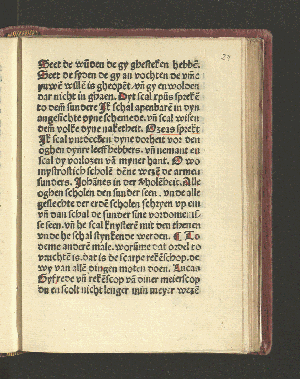 24
Seet de wūden de gy ghesteken hebbē.
Seet de syden de gy an vochten de vmē
yuwē willē is gheopēt. vñ gy en wolden
dar nicht in ghaen. Dyt scal xpūs sprekē
to dem sundere Jk schal apenbarē in dyn
angesichte dyne schemede. vñ scal wisen
dem volke dyne naketheit. Ozeas sprekt
Jk scal vntdecken dyne dorheit vor den
oghen dynre leefhebbers. vñ nemant en
scal dy vorlozen vā myner hant. O wo
mystrostich scholē dēne wezē de armen
sunders. Johānes in der apolēheit. Alle
oghen scholen den sunder seen. vnde alle
geslechte der erdē scholen schryen vp em
vñ dan schal de sunder sine vordomeniſ-
se seen. vñ he scal knysterē mit den thenen
vnde he schal stynkende werden. ¶ To
deme anderē male. worūme dat ordel to
vruchtē is. dat is de scarpe rekēschop. de
wy van allē dingen moten doen. Lucas
Gyf rede vā rekēscop vā diner meierscop
du en scolt nicht lenger min meyer wezē